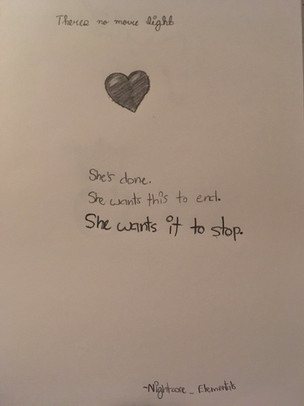 Theres no more light
She's done.
She wants this to end.
She wants it to stop.